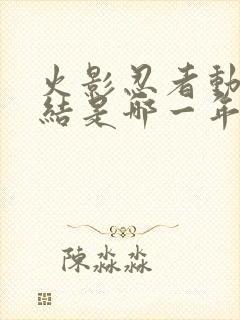 火影忍者動
結是哪一年
陳淼淼